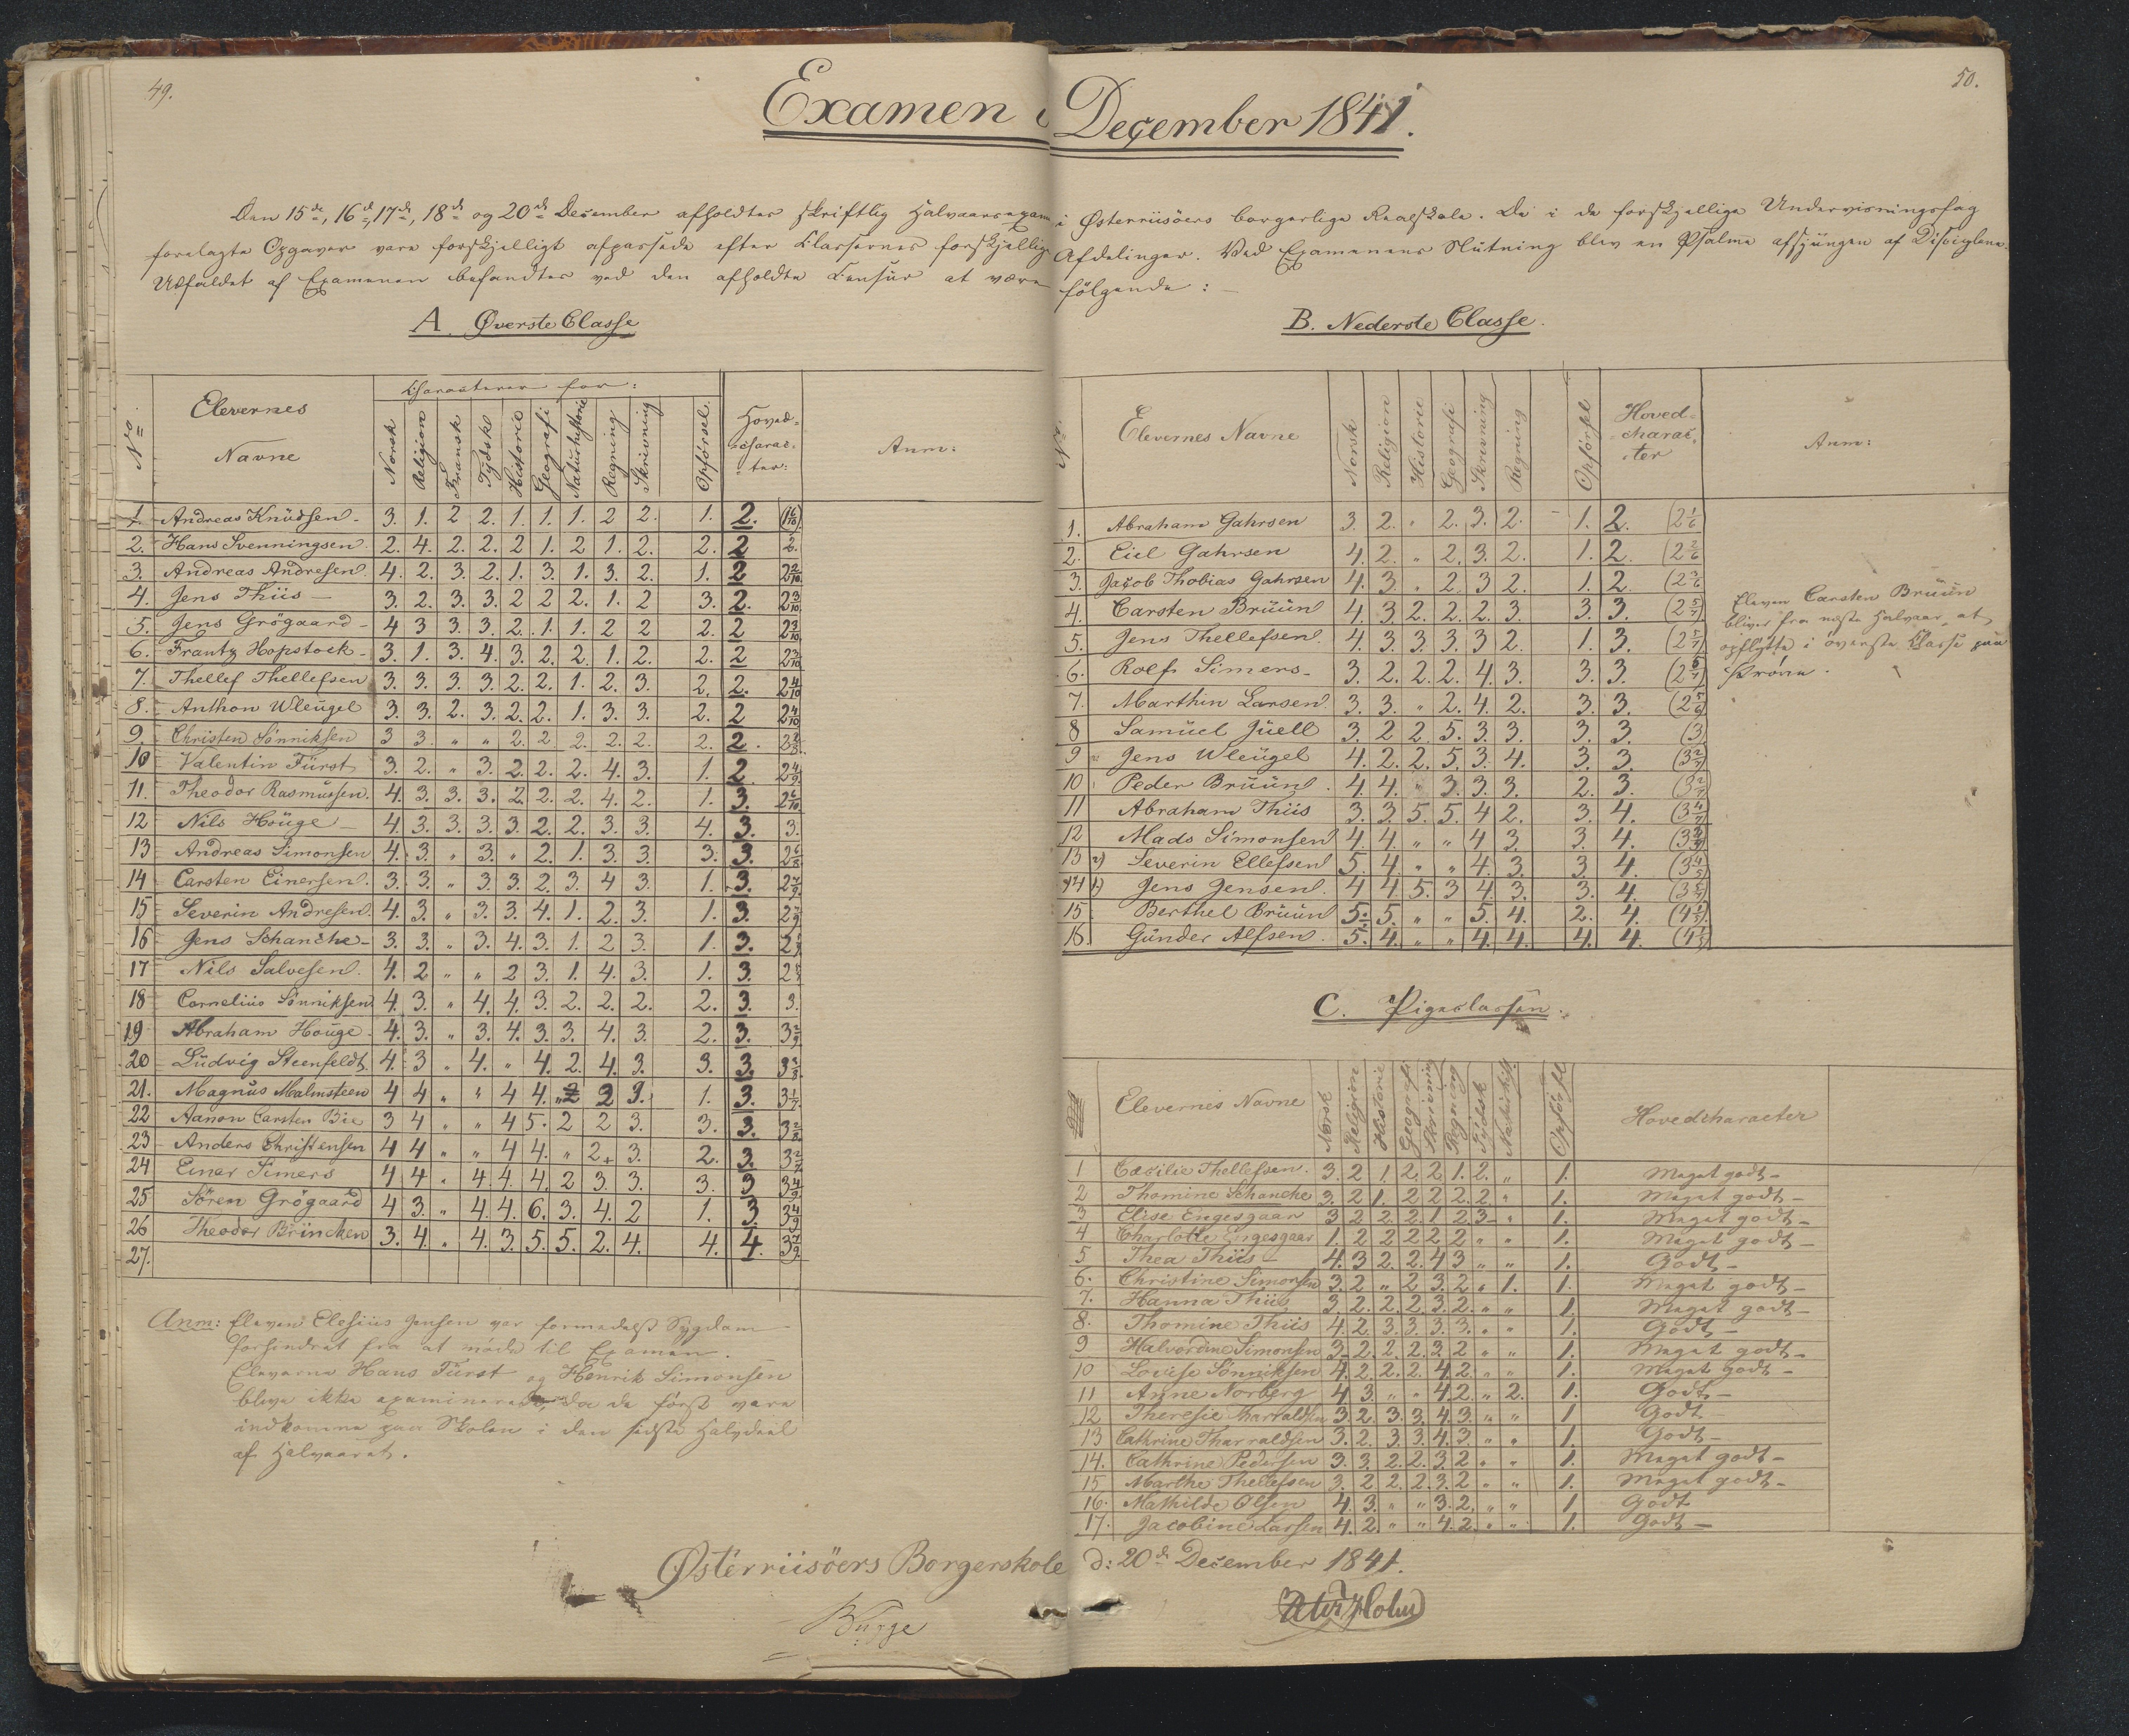 49.
50.
Examen i December 1841.
Den 15de, 16de, 17de, 18de og 20de December afholdtes skriftlig Halvaarsexamen i Østerriisöers borgerlige Realskole. De i de forskjellige Undervisningsfag
forelagte Opgaver vare forskjelligt afpassede efter Classernes forskjellige Afdelinger. Ved Examenens Slutning blev en Psalme afsjungen af Disciplene.
Udfaldet af Examenen befandtes ved den afholdte Censur at være følgende: —
A. Øverste Classe
No Elevernes Navne Characterer for: Hoved-charac-ter: Anm:
Norsk Religion Fransk Tydsk Historie Geografi Naturhistorie Regning Skrivning Opförsel.
1. Andreas Knudsen 3. 1. 2 2. 1. 1. 1. 2 2. 1. 2. (1 6/10)
2. Hans Svenningsen 2. 4. 2. 2. 2 1. 2 1. 2. 2. 2 2.
3. Andreas Andresen 4. 2. 3. 2. 1. 3. 1. 3. 2. 1. 2 2 2/10
4. Jens Thiis — 3. 2. 3. 3. 2 2 2. 1. 2 3. 2. 2 3/10
5. Jens Grögaard 4 3 3. 3. 2. 1. 1. 2 2 2. 2 2 3/10
6. Frantz Hopstock 3. 1. 3. 4. 3. 2. 2. 1. 2. 2. 2 2 3/10
7. Thellef Thellefsen 3. 3. 3. 3. 2. 2. 1. 2. 3. 2. 2. 2 4/10
8. Anthon Wleugel 3. 3. 2. 3. 2. 2. 1. 3. 3. 2. 2 2 4/10
9. Christen Sönniksen 3 3. " " 2. 2. 2. 2. 2. 2. 2.
10 Valentin Fürst 3. 2. " 3. 2. 2. 2. 4. 3. 1. 2. 2 4/9
11. Theodor Rasmussen. 4. 3. 3. 3. 2. 2. 2. 4. 2. 1. 3. 2 6/10
12 Nils Houge — 4. 3. 3. 3. 3. 2. 2. 3. 3. 4. 3. 3.
13 Andreas Simonsen 4. 3. " 3. " 2. 1. 3. 3. 3. 3. 2 6/8
14 Carsten Einersen. 3. 3. " 3. 3. 2. 3. 4 3. 1. 3. 2 7/9
15 Severin Andresen. 4. 3. " 3. 3. 4. 1. 2. 3. 1. 3. 2 7/9
16 Jens Schanche 3. 3. " 3. 4. 3. 1. 2 3. 1. 3.
17 Nils Salvesen. 4. 2 " " 2 3. 1. 4. 3. 1. 3.
18 Cornelius Sönniksen 4. 3. " 4. 4. 3. 2. 2. 2. 2. 3. 3.
19 Abraham Houge. 4. 3. " 3. 4. 3. 3. 4. 3. 2. 3. 3 2/9
20 Ludvig Steenfeldt. 4. 3 " 4. " 4. 2. 4. 3. 3. 3. 3 3/8
21. Magnus Malmsteen 4 4 " " 4 4. 2 3. 1. 3. 3 1/7
22 Aanon Carsten Bie 3 4 " " 4 5. 2 2 3. 3. 3. 3 2/8
23 Anders Christensen 4 4 " " 4 4. " 2. 3. 2. 3. 3 2/7
24 Einar Simers 4 4. " 4. 4. 4. 2 3. 3. 3. 3 3 4/9
25 Sören Grögaard 4 3. " 4. 4. 6. 3. 4. 2 1. 3 3 4/9
26 Theodor Brincken 3. 4. " 4. 3. 5. 5. 2. 4. 4. 4. 3 7/9
27.
Anm: Eleven Elesius Jensen var formedelst Sygdom
forhindret fra at möde til Examen.
Eleverne Hans Fürst og Henrik Simonsen
bleve ikke examinerede, da de först vare
indkomne paa Skolen i den sidste Halvdeel
af Halvaaret.
B. Nederste Classe.
No. Elevernes Navne Norsk Religion Historie Geografi Skrivning Regning Opförsel Hoved-charac-ter Anm:
1. Abraham Gahrsen 3. 2. " 2. 3. 2. 1. 2. (2 1/6)
2. Eiel Gahrsen 4. 2. " 2. 3. 2. 1. 2. (2 2/6)
3. Jacob Thobias Gahrsen 4. 3. " 2. 3 2. 1. 2. (2 3/6)
4. Carsten Bruun 4. 3 2. 2. 2. 3. 3. 3. (2 5/7)
5. Jens Thellefsen. 4. 3. 3. 3. 3 2. 1. 3. (2 5/7)
6. Rolf Simers 3. 2. 2. 2. 4. 3. 3. 3. (2 5/7)
7. Marthin Larsen 3. 3. " 2. 4. 2. 3. 3. (2 5/6)
8 Samuel Juell 3. 2 2. 5. 3. 3. 3. 3. (3)
9 Jens Wleugel 4. 2. 2. 5. 3. 4. 3. 3. (3 2/7)
10 Peder Bruun. 4. 4. " 3. 3. 3. 2. 3.
11 Abraham Thiis 3. 3. 5. 5. 4 2. 3. 4. (3 4/7)
12 Mads Simonsen 4. 4. " " 4 3. 3. 4.
13 Severin Ellefsen 5. 4. " " 4. 3. 3 4. (3 4/5)
14 Jens Jensen. 4 4. 5. 3 4. 3. 3. 4. (3 5/7)
15 Berthel Bruun 5. 5. " " 5. 4. 2. 4. (4 1/5)
16. Gunder Alfsen. 5. 4. " " 4. 4. 4. 4. (4 1/5)
Eleven Carsten Bruun
bliver fra næste Halvaar at
opflytte i överste Classe paa
Pröve.
C. Pigeclassen.
Elevernes Navne Norsk Religion Historie Geografi Skrivning Regning Tydsk Naturhist. Opförsel Hovedcharacter
1 Cæcilie Thellefsen. 3. 2 1. 2. 2 1. 2. " 1. Meget godt —
2 Thomine Schanche 3. 2 1. 2 2 2. 2. " 1. Meget godt —
3 Elise Engesgaar 3 2 2. 2. 1 2. 3 " 1. Meget godt —
4 Charlotte Engesgaar 1. 2 2 2 2 2 " " 1. Meget godt —
5 Thea Thiis 4. 3 2. 2. 4 3 " " 1. Godt —
6. Christine Simonsen 3. 2 " 2 3. 2 " 1. 1. Meget godt —
7. Hanna Thiis 3. 2. 2. 2 3. 2. " " 1. Meget godt —
8. Thomine Thiis 4. 2. 3. 3. 3. 3. " " 1. Godt —
9 Halvordine Simonsen 3 2. 2. 2. 3. 2 " " 1. Meget godt —
10 Lovise Sönniksen 4. 2. 2. 2. 4 2. " " 1. Meget godt —
11 Anne Norberg 4 3. " " 4 2. " 2. 1. Godt —
12 Theresie Tharraldsen 3. 2. 3. 3. 4. 3. " " 1 Godt —
13 Cathrine Tharraldsen 3. 2. 3. 3. 4. 3. " " 1. Godt —
14. Cathrine Pedersen 3. 3. 2. 2. 3. 2 " " 1. Meget godt —
15 Marthe Thellefsen 3. 2 2. 2. 3. 2 " " 1. Meget godt —
16. Mathilde Olsen 4. 3. " " 3. 2. " " 1 Godt
17. Jacobine Larsen 4. 2 " " 4. 2. " " 1. Godt —
Østerriisöers Borgerskole d: 20de December 1841.
Bugge
Holm